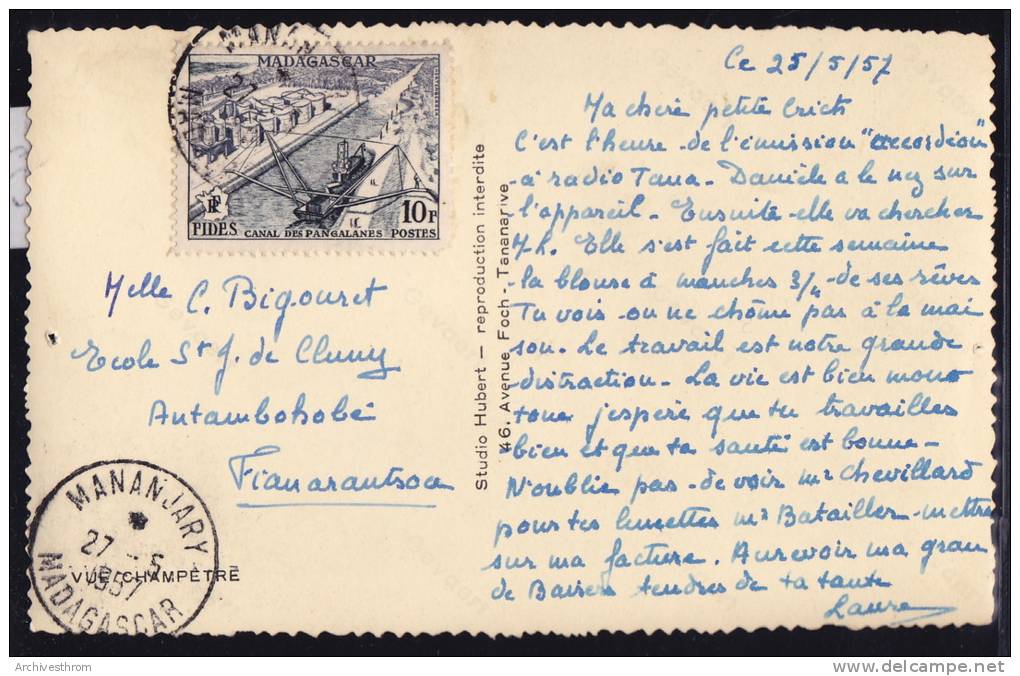 MANANJARY
MADAGASCAR
RF
10F
FIDES CANAL DES PANGALANES POSTES
Melle C. Bigouret
Ecole St J. de Cluny
Antambohobé
Fianarantsoa
MANANJARY
27 - 5
1957
MADAGASCAR
VUE CHAMPÊTRE
Studio Hubert — reproduction interdite
46, Avenue Foch - Tananarive
Ce 25/5/57
Ma chère petite
C'est l'heure de l'émission "accordéon"
à radio Tana - Danièle a le nez sur
l'appareil - Ensuite elle va chercher
Elle s'est fait cette semaine
la blouse à manches 3/4 de ses rêves
Tu vois on ne chôme pas à la mai
son. Le travail est notre grande
distraction - La vie est bien mono
tone j'espère que tu travailles
bien et que ta santé est bonne -
N'oublie pas de voir Mr Chevillard
pour tes lunettes Mr Batailler mettra
sur ma facture. Au revoir ma gran
de Baisers tendres de ta tante
Laure
Gevaert
Archivesthrom
delcampe.net